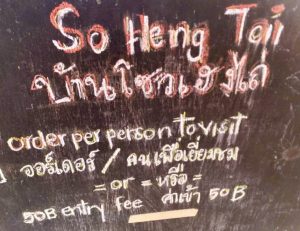 So Heng Tai
บ้านโซวเฮงไถ่
order per person to visit
ออร์เดอร์ / คน เพื่อเยี่ยมชม
= or = หรือ =
50B entry fee ค่าเข้า 50 B